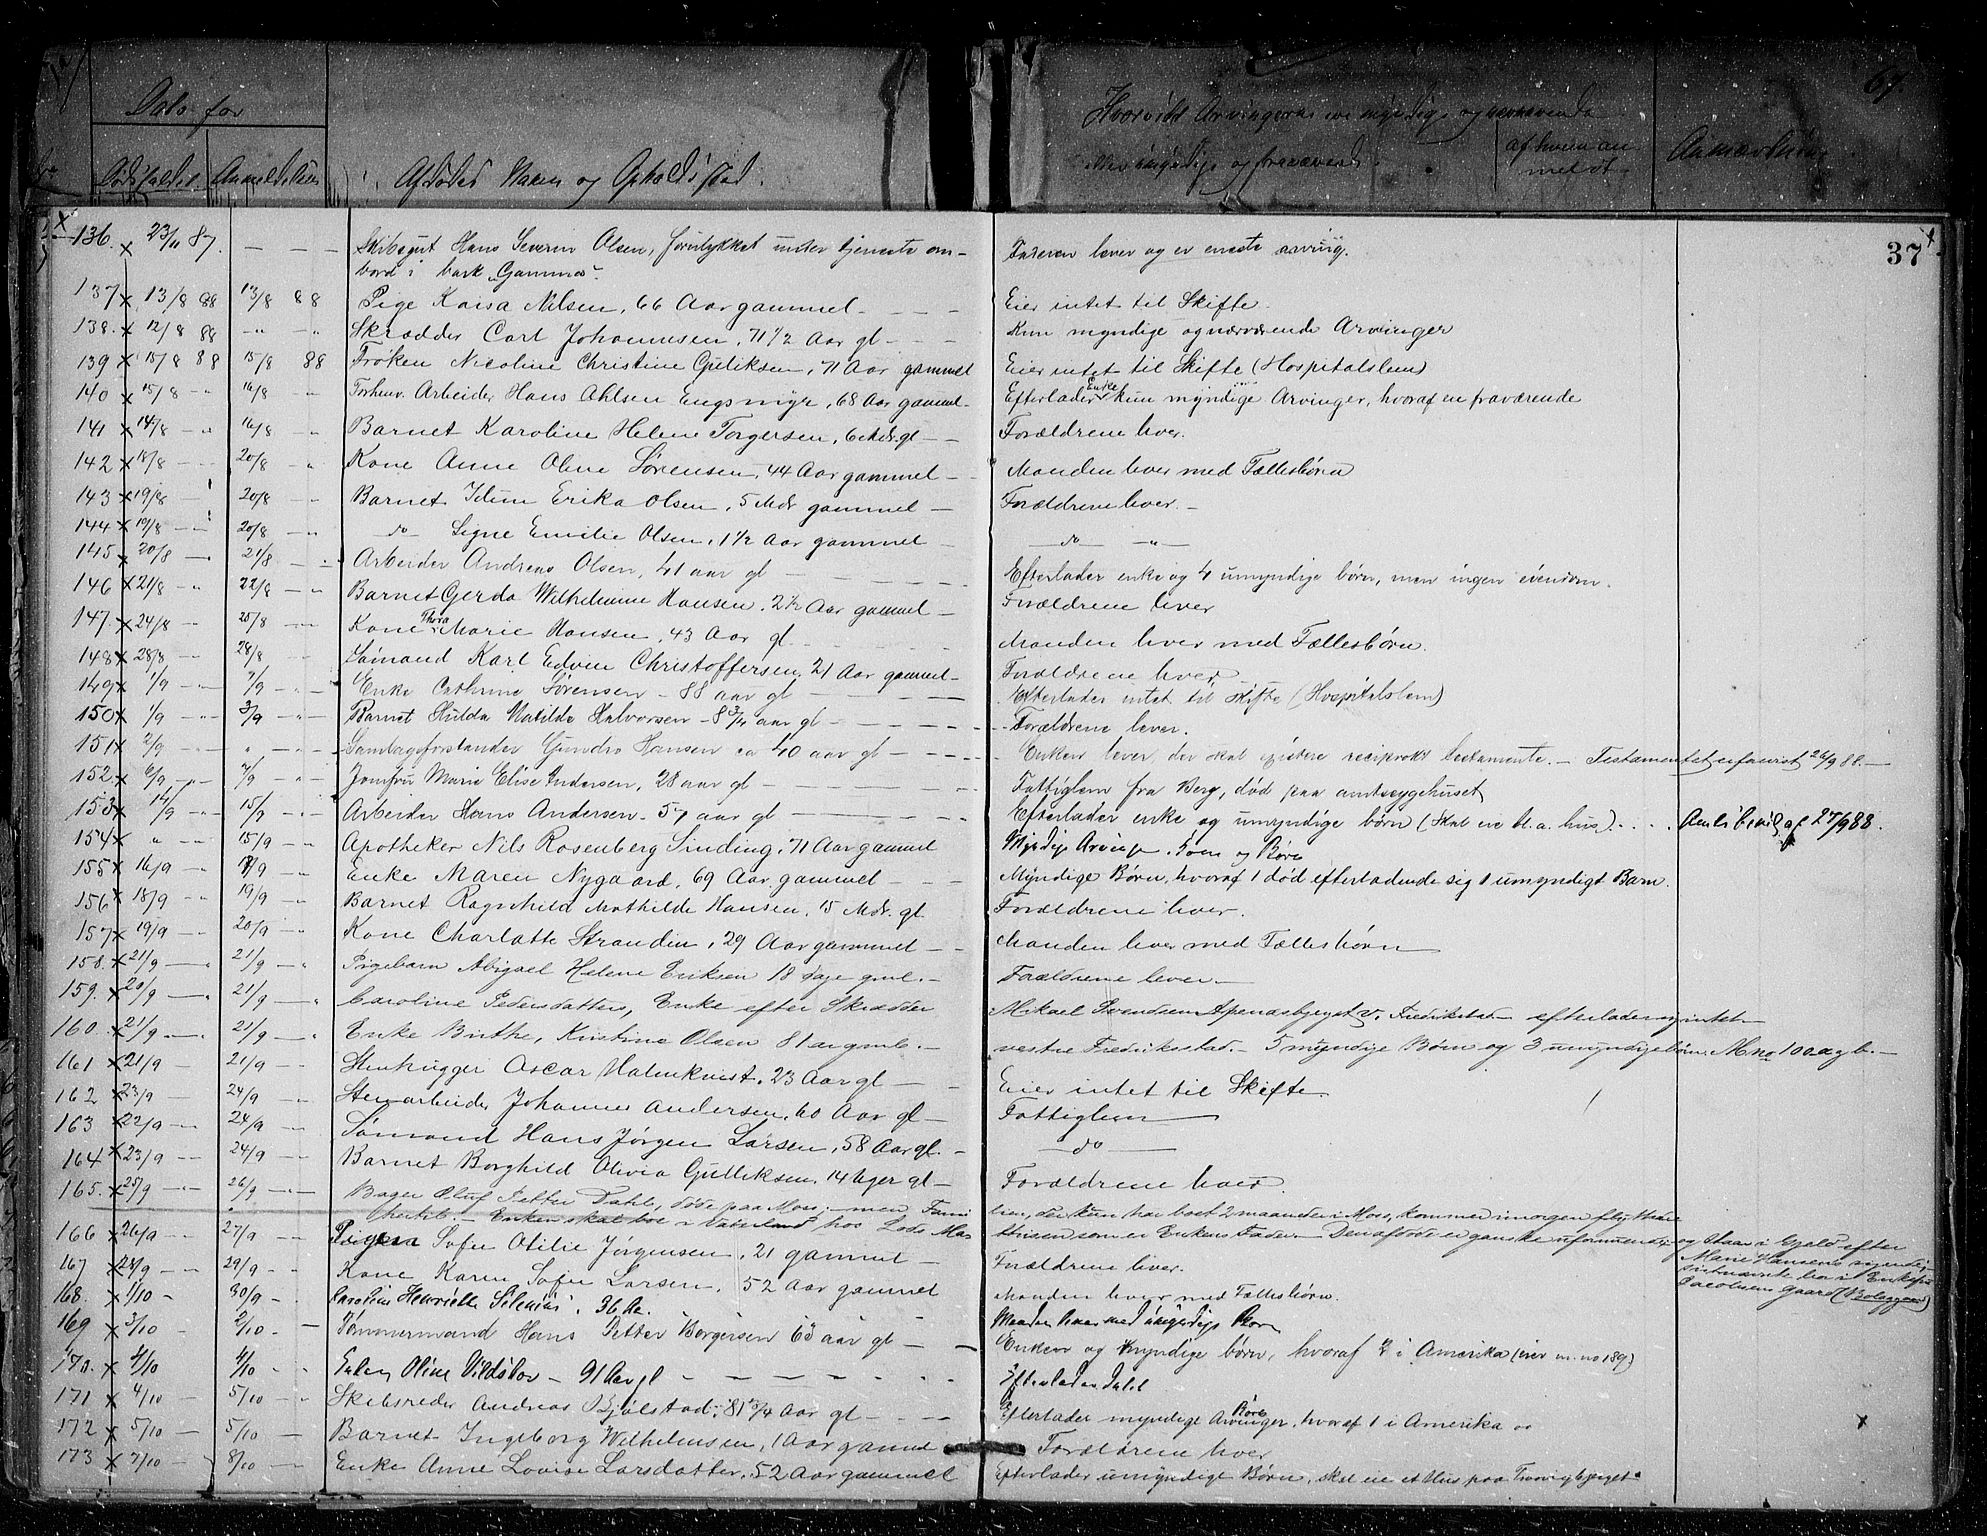 Dato for
Dødsfaldet. Anmeldelsen
Afdødes Navn og Opholdssted.
Hvorvidt Arvingerne ere myndige og nærværende
eller umyndige og fraværende.
af hvem an
meldt
Anmærkning
67.
37
136. x 23/11 87. — — Skibsgut Hans Severin Olsen, forulykket under tjeneste om- Faderen lever og er eneste arving.
bord i bark "Gamma".
137 x 13/8 88 13/8 88 Pige Kaisa Nilsen, 66 Aar gammel - - - Eier intet til Skifte.
138. x 12/8 88 -"- -"- Skrædder Carl Johannesen, 71 1/2 Aar gl - - - Kun myndige og nærværende Arvinger
139 x 15/8 88 15/8 88 Frøken Nicoline Christine Guliksen, 71 Aar gammel Eier intet til Skifte (Hospitalslem)
140 x 15/8 -"- 16/8 " Forhenv. Arbeider Hans Ahlsen Engsmyr, 68 Aar gammel- Efterlader Enke kun myndige Arvinger, hvoraf en fraværende
141 x 14/8 - " 16/8 " Barnet Karoline Helene Torgersen, 6 Mdr. gl - - Forældrene lever.
142 x 18/8 - - 20/8 - " Kone Anne Oline Sørensen, 44 Aar gammel - - Manden lever med Fællesbørn
143 x 19/8 - 20/8 - " Barnet Idun Erika Olsen, 5 Mdr gammel - Forældrene lever. -
144 x 19/8 - - 20/8 - " - do - Signe Emilie Olsen, 1 1/2 Aar gammel - - do - - " -
145 x 20/8 - " 21/8 - . Arbeider Andreas Olsen, 41 aar gl - - - - Efterlader enke og 4 umyndige børn, men ingen eiendom.
146 x 21/8 - " 22/8 - " Barnet Gerda Wilhelmine Hansen, 2 1/2 Aar gammel - Forældrene lever
147. x 24/8 - " 25/8 - " Kone Thora Marie Hansen, 43 Aar gl. - - - Manden lever med Fællesbørn.
148 x 28/8 - - 28/8 - - Sømand Karl Edvin Christoffersen, 21 Aar gammel - Forældrene lever.
149 x 1/9 - " - " Enke Cathrine Sørensen - 88 aar gl - - - Efterlader intet til skifte (Hospitalslem)
150 x 1/9 - " 3/9 - " Barnet Hulda Matilde Halvorsen - 8 3/4 aar gl - - - Forældrene lever.
151 x 2/9 - " " - " Samlagsforstander Hansen ca 40 aar gl - - - Enken lever, der skal existere reciprokt testamente. - Testamentet 26/9 88. -
152. x 6/9 - " 7/9 - " Jomfru Marie Elise Andersen, 28 aar gl - - - Fattiglem fra Berg, død paa amtssygehuset
153 x 14/9 - " 15/9 - " Arbeider Hans Andersen - 57 aar gl - - - Efterlader enke og umyndige børn (skal eie bl. a. hus) . . . . Amtsbevilg. af 27/9 88.
154 x " - " 15/9 - " Apotheker Nils Rosenberg Sinding, 71 Aar gammel Myndige Arvinge, Kone og Børn
155 x 16/9 - " /9 - " Enke Maren Nygaard, 69 Aar gammel - - - Myndige Børn, hvoraf 1 død efterladende sig 1 umyndigt Barn.
156 x 18/9 - " 19/9 - " Barnet Ragnhild Mathilde Hansen, 15 Mdr. gl Forældrene lever.
157 x 19/9 - " 20/9 - " Kone Charlotte Strandin, 29 Aar gammel - - Manden lever med Fællesbørn
158. x 21/9 - " 21/9 - " Pigebarn Abigael Helene Eriksen 18 dage gml. - Forældrene lever -
159. x 20/9 - " 21/9 - " Caroline Pedersdatter, Enke efter Skrædder Mikael Svendsen Apenæsbjerget v. Fredrikstad - efterlader intet
160. x 21/9 - " 21/9 - " Enke Birthe Kristine Olsen 81 ar gml. - vestre Fredrikstad. - 5 myndige Børn og 3 umyndige børn. M. no 100 a g b. -
161 x 21/9 - 21/9 - " Stenhugger Oscar Halmkvist, 23 Aar gl - - Eier intet til Skifte
162 x 23/9 - 24/9 - " Stenarbeider Johannes Andersen, 60 Aar gl - Fattiglem
163 x 22/9 - " 24/9 - " Sømand Hans Jørgen Larsen, 58 Aar gl. - - do -
164 x 23/9 - - 24/9 - " Barnet Borghild Olivia Gulliksen, 14 Uger gl - Forældrene lever.
165. x 25/9 - " 26/9 - " Bager Oluf Petter Dahl, døde paa Moss, men Fami lien, der kun har boet 2 maaneder i Moss, kommer imorgen flyttende
herhid. - Enken skal bo i Vaterland hos Lods Ma thisen som er Enkens Fader. - Den afdøde er ganske uformuende, og staar i Gjæld efter
Marie Hansens myndige,
Jacobsens Gaard (Bolaggaard)
166 x 26/9 - 27/9 - " Pigen Sofie Otilie Jørgensen, 21 gammel - Forældrene lever.
167 x 28/9 - " 29/9 - " Kone Karen Sofie Larsen, 52 Aar gammel Manden lever med Fællesbørn.
168. x 1/10 - 30/9 - Karoline Henriette Silenius, 36 Aar. - Manden lever med umyndige Børn
169 x 3/10 - 2/10 - - Tømmermand Hans Petter Borgersen 63 aar gl - - Enken og myndige børn, hvoraf 2 i Amerika (eier m. no 189)
170. x 4/10 4/10 - " Enken Oline Vildskov - 91 Aar gl - - - - Efterlader intet
171 x 4/10 - 5/10 - Skibsreder Andreas Bjølstad, 81 3/4 Aar gl - - - Efterlader myndige Arvinger, Børn hvoraf 1 i Amerika
172 x 5/10 - 5/10 - Barnet Ingeborg Wilhelmsen, 1 Aar gammel Forældrene lever
173 x 7/10 - " 8/10 - - Enke Anne Lovise Larsdatter, 52 Aar gammel Efterlader umyndige Børn, skal eie et Hus paa Trosvigbjerget.